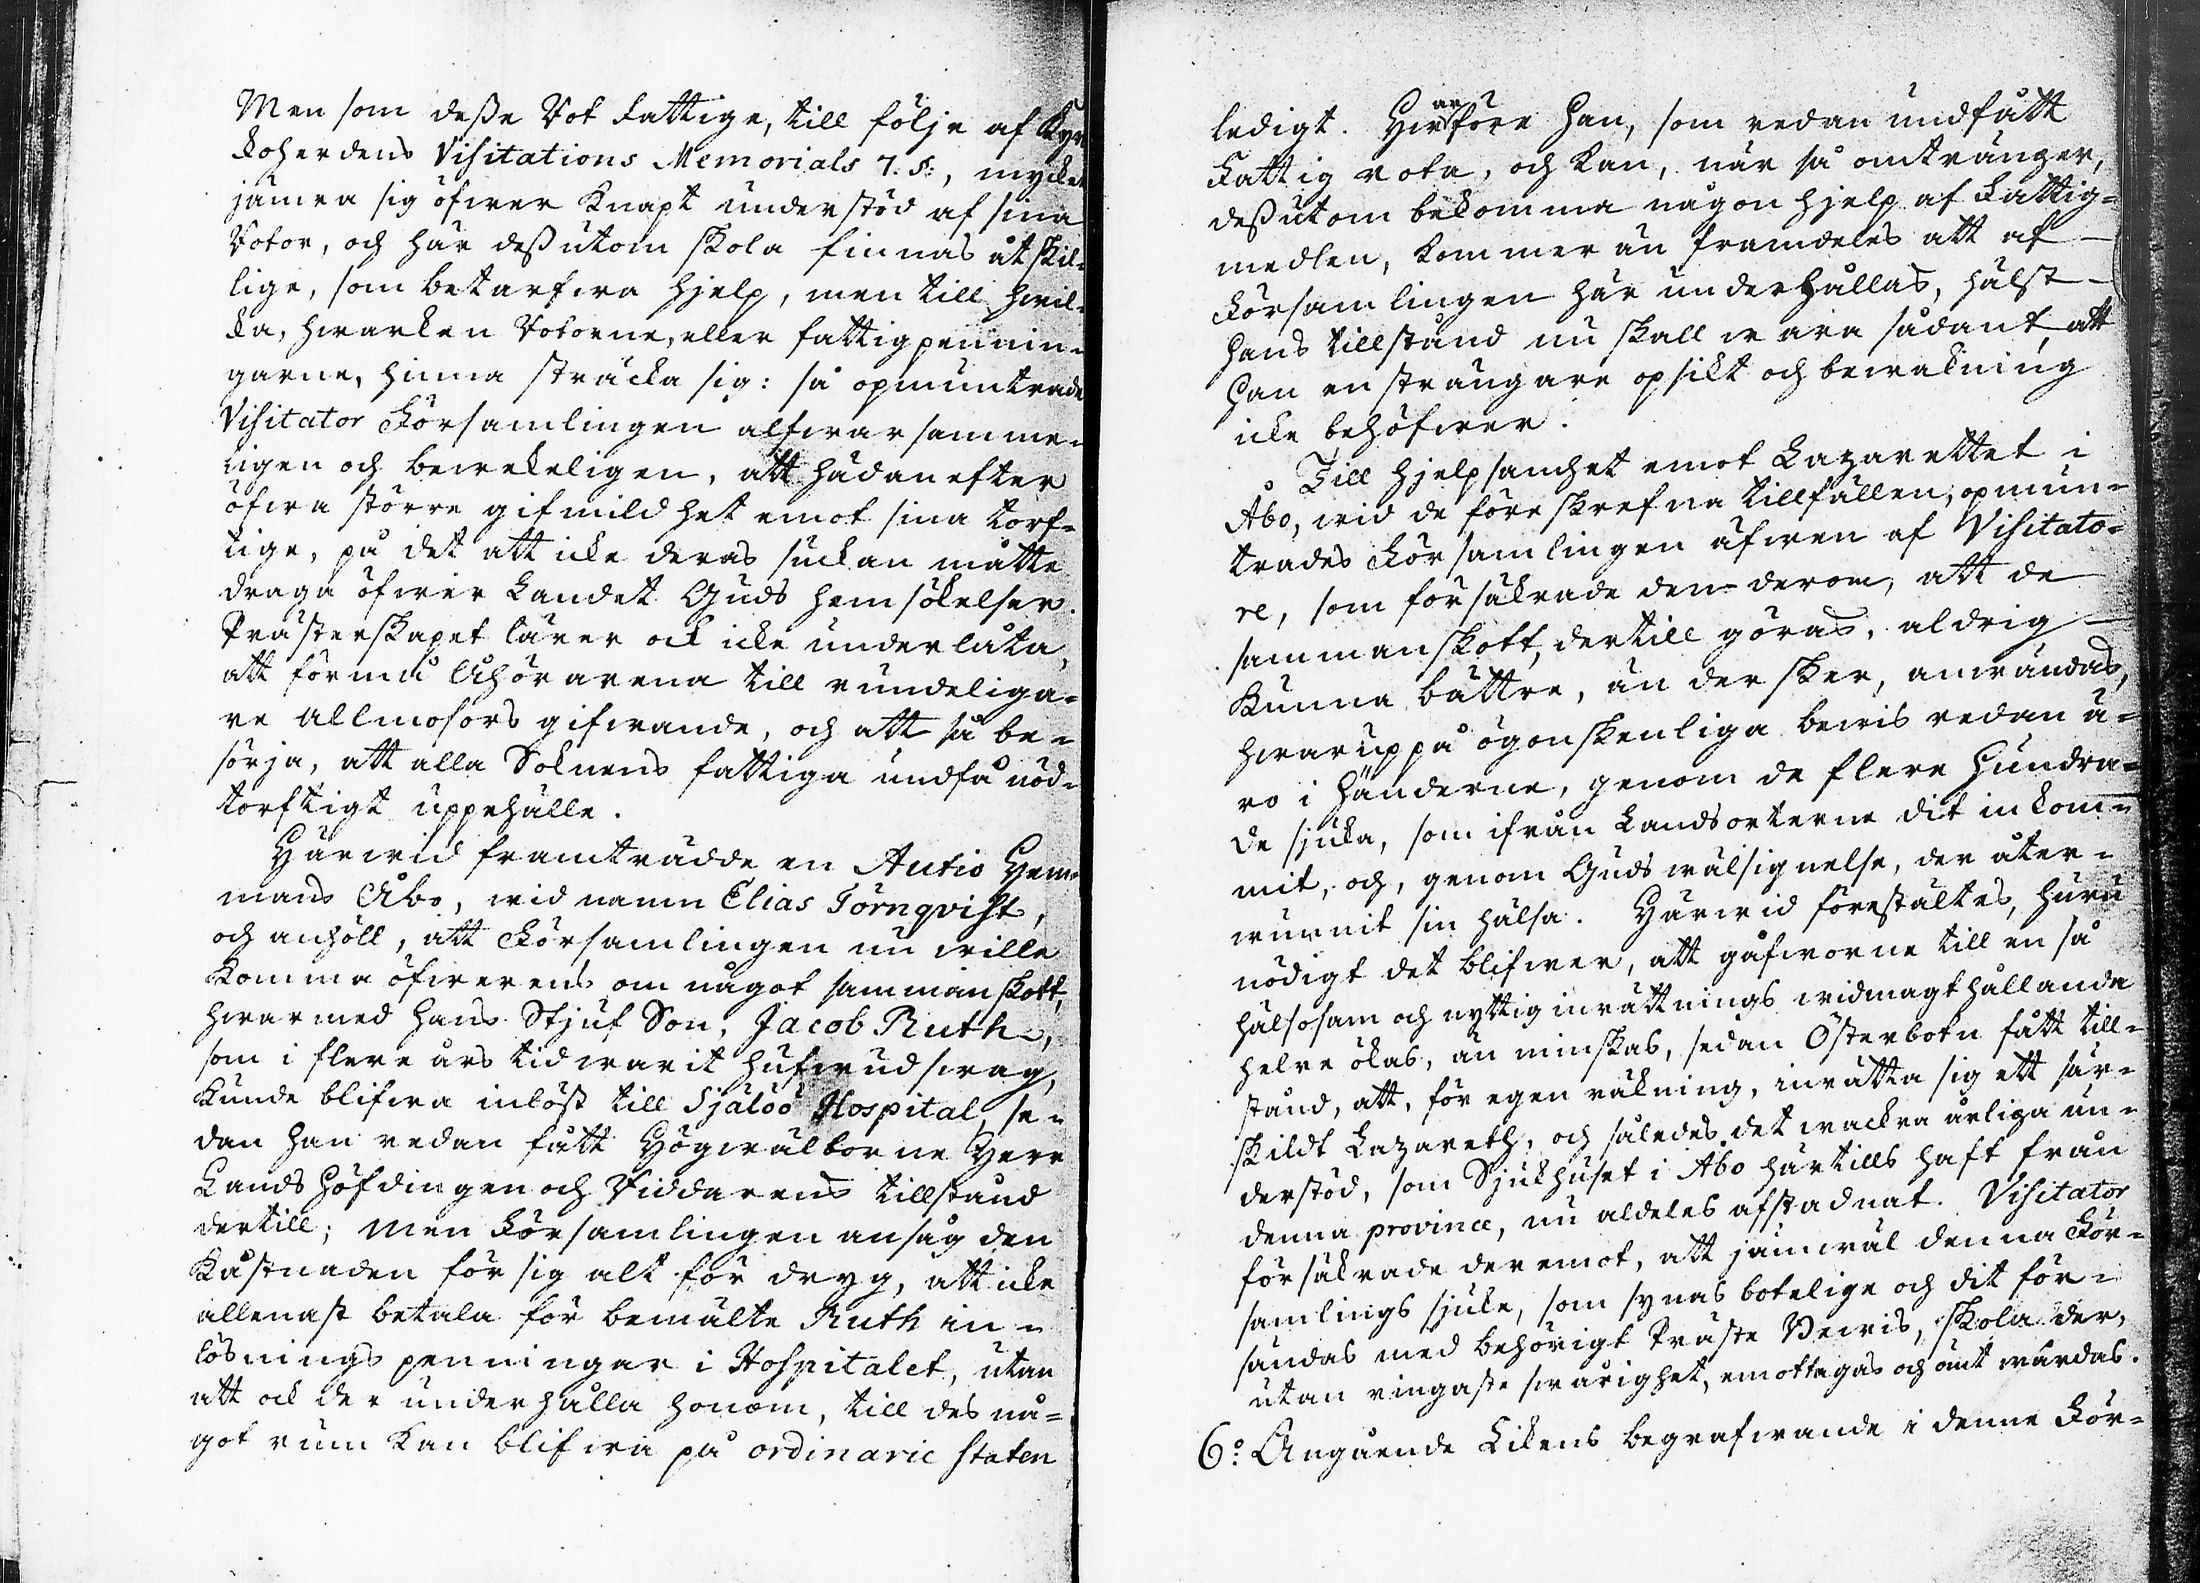 Men som desse Rot Fattige, till följe af Kyr
koherdens Visitations Memorials 7. §:, mycket
jämra sig öfwer knapt understöd af sina
Rotor, och här dessutom skola finnas åtskil-
lige, som betarfwa hjelp, men till hwil-
ka, hwarken Rotorne, eller fattigpennin-
garne, hinna sträcka sig: så opmuntrade
Visitator Församlingen alfwarsamme-
ligen och bewekeligen, att hädanefter
öfwa större gifmildhet emot sina torf-
tige, på det att icke deras suckan måtte
draga öfwer Landet Guds hemsökelser.
Prästerskapet lärer ock icke underlåta,
att förmå Åhörarena till rundeliga-
re Allmosors gifwande, och att så be-
sörja, att alla Soknens fattiga undfå nöd-
torftigt uppehälle.
Härwid framträdde en Autio Hem-
mans Åbo, wid namn Elias Törnqvist,
och anhöll, att Församlingen nu wille
komma öfwerens om något sammanskott,
hwarmed hans Stjuf Son, Jacob Ruth,
som i flere års tid warit hufwudswag,
kunde blifwa inlöst till Själöö Hospital, se-
dan han redan fått Högwälborne Herr
Landshöfdingen och Riddarens tillstånd
dertill; Men Församlingen ansåg den
kåstnaden för sig alt för dryg, att icke
allenast betala för bemälte Ruth in-
lösnings penningar i Hospitalet, utan
att ock der underhålla honom, till des nå-
got rum kan blifwa på ordinarie staten
ledigt. Hwarföre han, som redan undfått
Fattig rota, och kan, när så omtränger,
dessutom bekomma någon hjelp af Fattig-
medlen, kommer än framdeles att af
Församlingen här underhållas, hälst
hans tillstånd nu skall wara sådant, att
han en strängare opsikt och bewakning
icke behöfwer.
Till hjelpsamhet emot Lazarettet i
Åbo, wid de föreskrefna tillfällen, opmun-
trades Församlingen äfwen af Visitato-
re, som försäkrade den derom, att de
sammanskott, dertill göras, aldrig
kunna bättre, än der sker, anwändas,
hwaruppå ögonskenliga bewis redan ä-
ro i händerne, genom de flere Hundra-
de sjuka, som ifrån Landsorterne dit inkom-
mit, och, genom Guds wälsignelse, der åter-
wunnit sin hälsa. Härwid föreställtes, huru
nödigt det blifwer, att gåfworne till en så
hälsosam och nyttig inrättnings widmagthållande
helre ökas, än minskas, sedan Österbotn fått till-
stånd, att, för egen räkning, inrätta sig ett sär-
skildt Lazareth, och således det wackra årliga un-
derstöd, som Sjukhuset i Åbo härtills haft från
denna province, nu aldeles afstadnat. Visitator
försäkrade deremot, att jämwäl denna För-
samlings sjuke, som synas botelige och dit för-
sändas med behörigt Präste Bewis, skola der,
utan ringaste swårighet, emottagas och ömt wårdas.
6:o Angående Likens begrafwande i denne För-